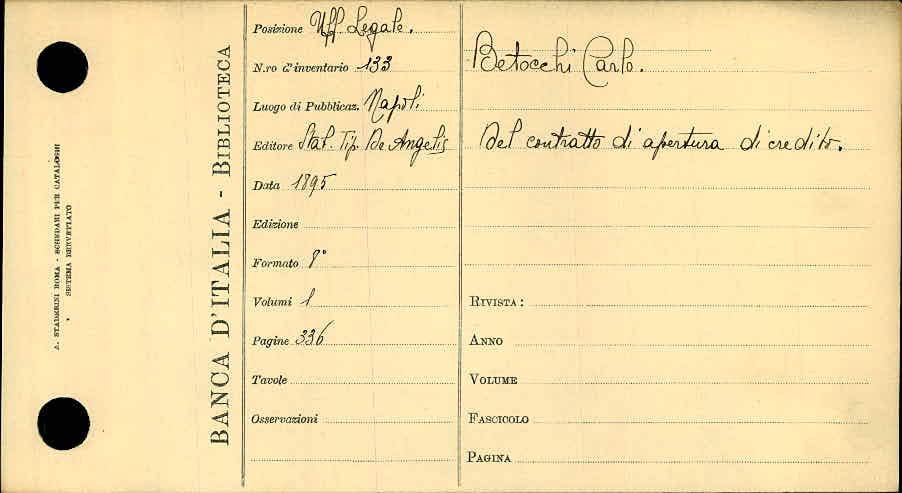 A. STADERINI ROMA - SCHEDARI PER CATALOGHI
• SISTEMA BREVETTATO
BANCA D'ITALIA - BIBLIOTECA
Posizione Uff. Legale.
N.ro d'inventario 133
Luogo di Pubblicaz. Napoli
Editore Stab. Tip. De Angelis
Data 1895
Edizione
Formato 8°
Volumi 1
Pagine 336
Tavole
Osservazioni
Betocchi Carlo.
Del contratto di apertura di credito.
RIVISTA:
ANNO
VOLUME
FASCICOLO
PAGINA